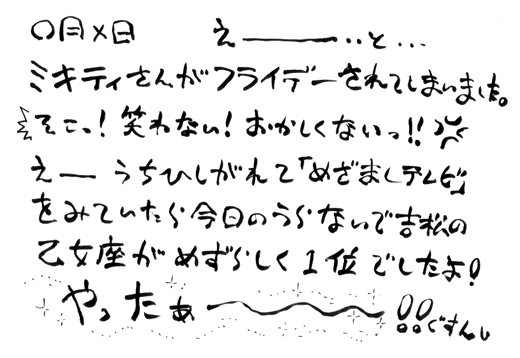 〇月×日　　えーーー‥と…
ミキティさんがフライデーされてしまいました。
そこっ！笑わない！おかしくないっ!!
えー うちひしがれて「めざましテレビ」
をみていたら今日のうらないで吉松の
乙女座がめずらしく1位でしたよ！
やったぁ〜〜〜!! ぐすんし